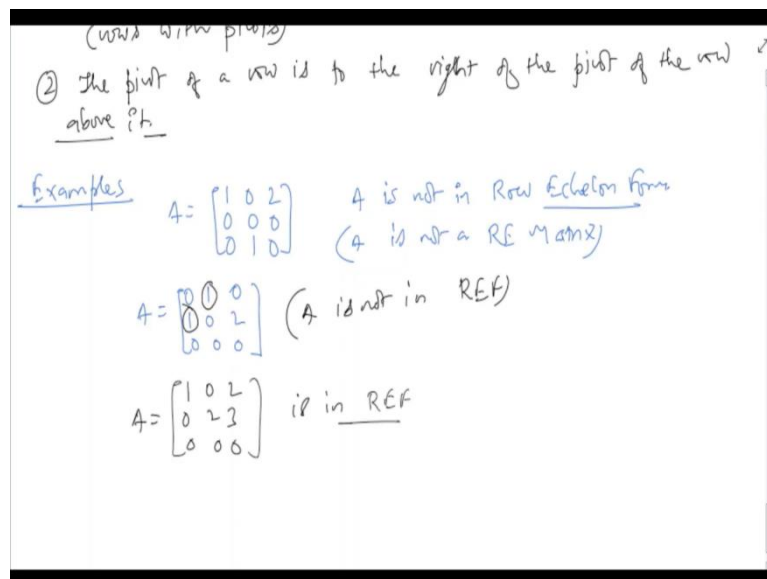 (rows with pivots)
② The pivot of a row is to the right of the pivot of the row
above it.
Examples
A = [1 0 2 A is not in Row Echelon Form
0 0 0
0 1 0] (A is not a RE Matrix)
A = [0 1 0
1 0 2 (A is not in REF)
0 0 0]
A = [1 0 2
0 2 3 is in REF
0 0 0]